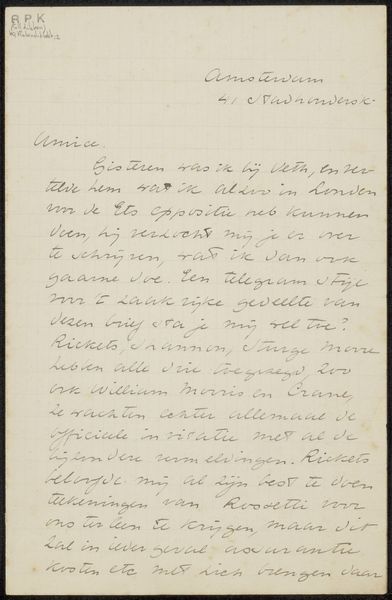 R P K
Amsterdam
41 Stadhoudersk.
Amice.
Gisteren was ik bij Veth, en ver-
telde hem wat ik alzoo in Londen
voor de Ets expositie heb kunnen
doen, hij verzocht mij je er over
te schrijven, wat ik dan ook
gaarne doe. Een telegram stijl
voor 't zaakrijke gedeelte van
dezen brief sta je mij wel toe?
Rickets, Shannon, Sturge Moore
hebben alle drie toegezegd, zoo
ook William Morris en Crane,
ze wachten echter allemaal de
officiele invitatie met al de
bijzondere vermeldingen. Rickets
beloofde mij al zijn best te doen
teekeningen van Rossetti voor
ons ter leen te krijgen, maar dit
zal in ieder geval assurantie
kosten etc met zich brengen daar